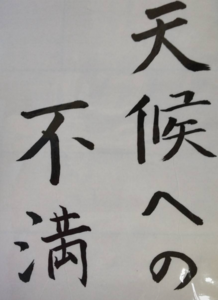 天候への
不満